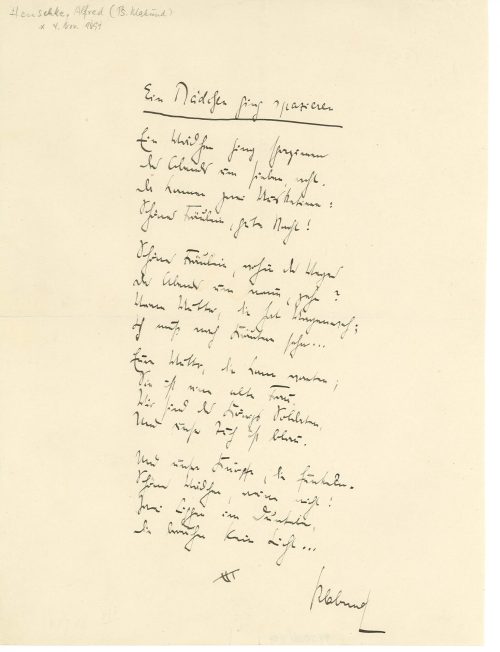 Henschke, Alfred (B. Klabund)
x 4. Nov. 1891
Ein Mädchen ging spazieren
Ein Mädchen ging spazieren
des Abends um sieben acht.
da kamen zwei Musketiere:
Schöne Fräulein, gute Nacht!
Schöne Fräulein, wohin des Weges
des Abends um neun, zehn?
Unsre Mutter, die hat
ich muß nach Kräutern sehn...
Eure Mutter, die kann warten;
Sie ist eine alte Frau.
Wir sind des Königs Soldaten,
Und unser Tuch ist blau.
Und unsre Knöpfe, die funkeln.
Schöne Mädchen, weine nicht!
Zwei Lippen im Dunkeln,
die brauchen kein Licht...
Klabund